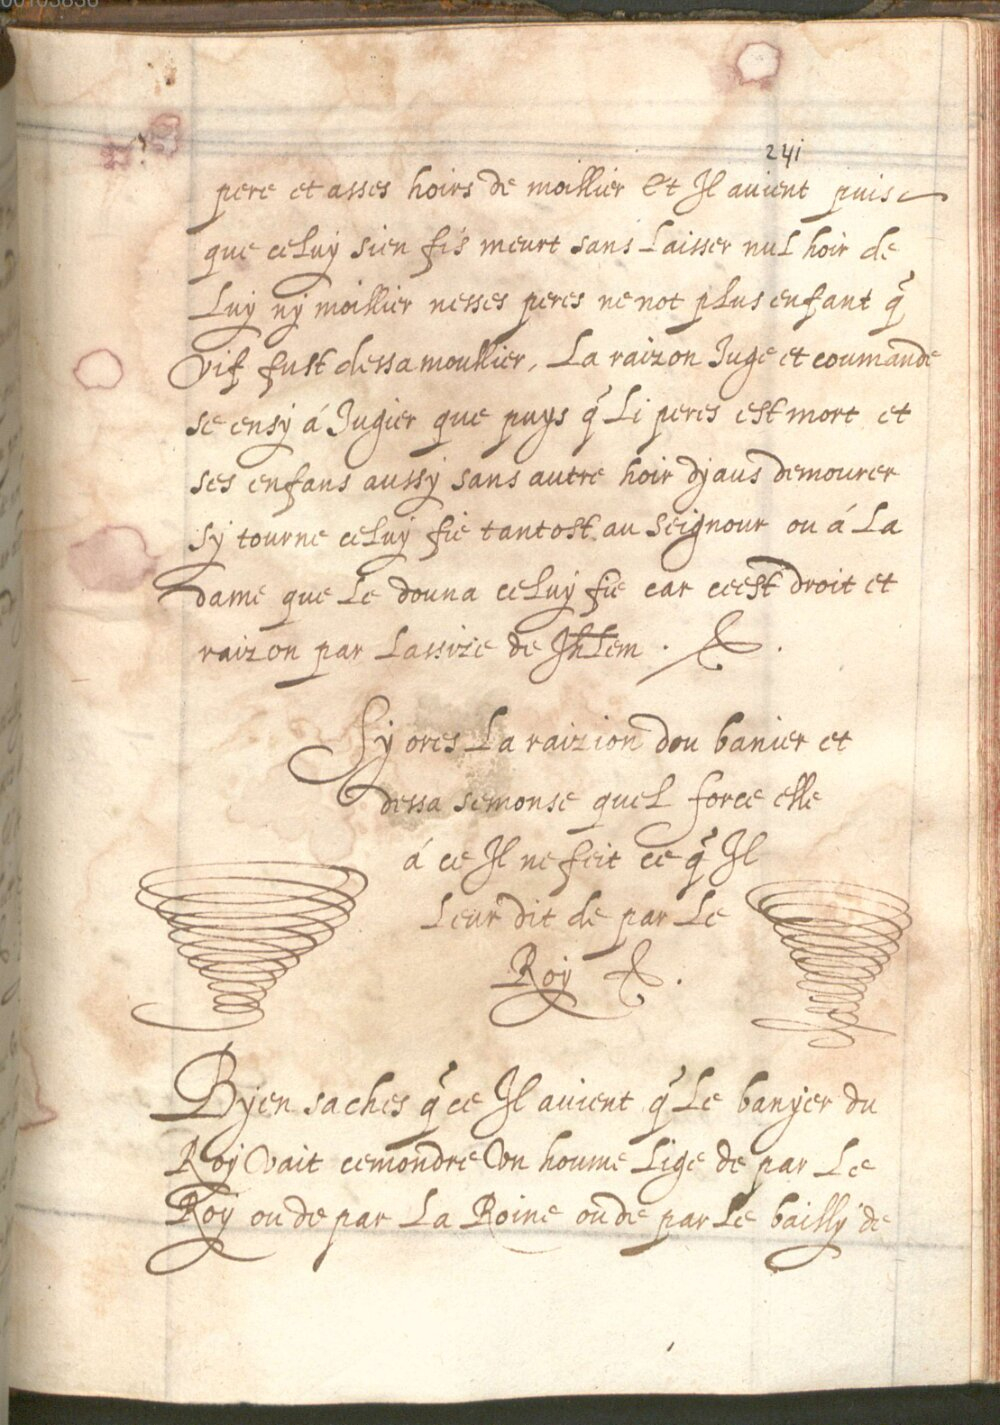 00103836
241
pere et asses hoirs de moillier Et Il auient puis
que celuy sien fis meurt sans Laisser nul hoir de
Luy ny moillier nesses peres ne not plus enfant q̃
vif fust dessa moullier, La raizon Iuge et coumande
se ensy á Jugier que puys q̃ Li peres est mort et
ses enfans aussy sans autre hoir djaus demourer
sy tourne celuy fie tantost au seignour ou á La
dame que Le donna celuy fie car ceest droit et
raizon par Lassize de Jhlem .
Sy ores La raizion dou banier et
dessa semonse quel force elle
á ce Il ne feit ce q̃ Il
Leur dit de par Le
Roy
Byen saches q̃ ce Il auient q̃ Le banyer du
Roy vait cemondre vn houme Lige de par Le
Roy ou de par La Roine ou de par Le bailly de